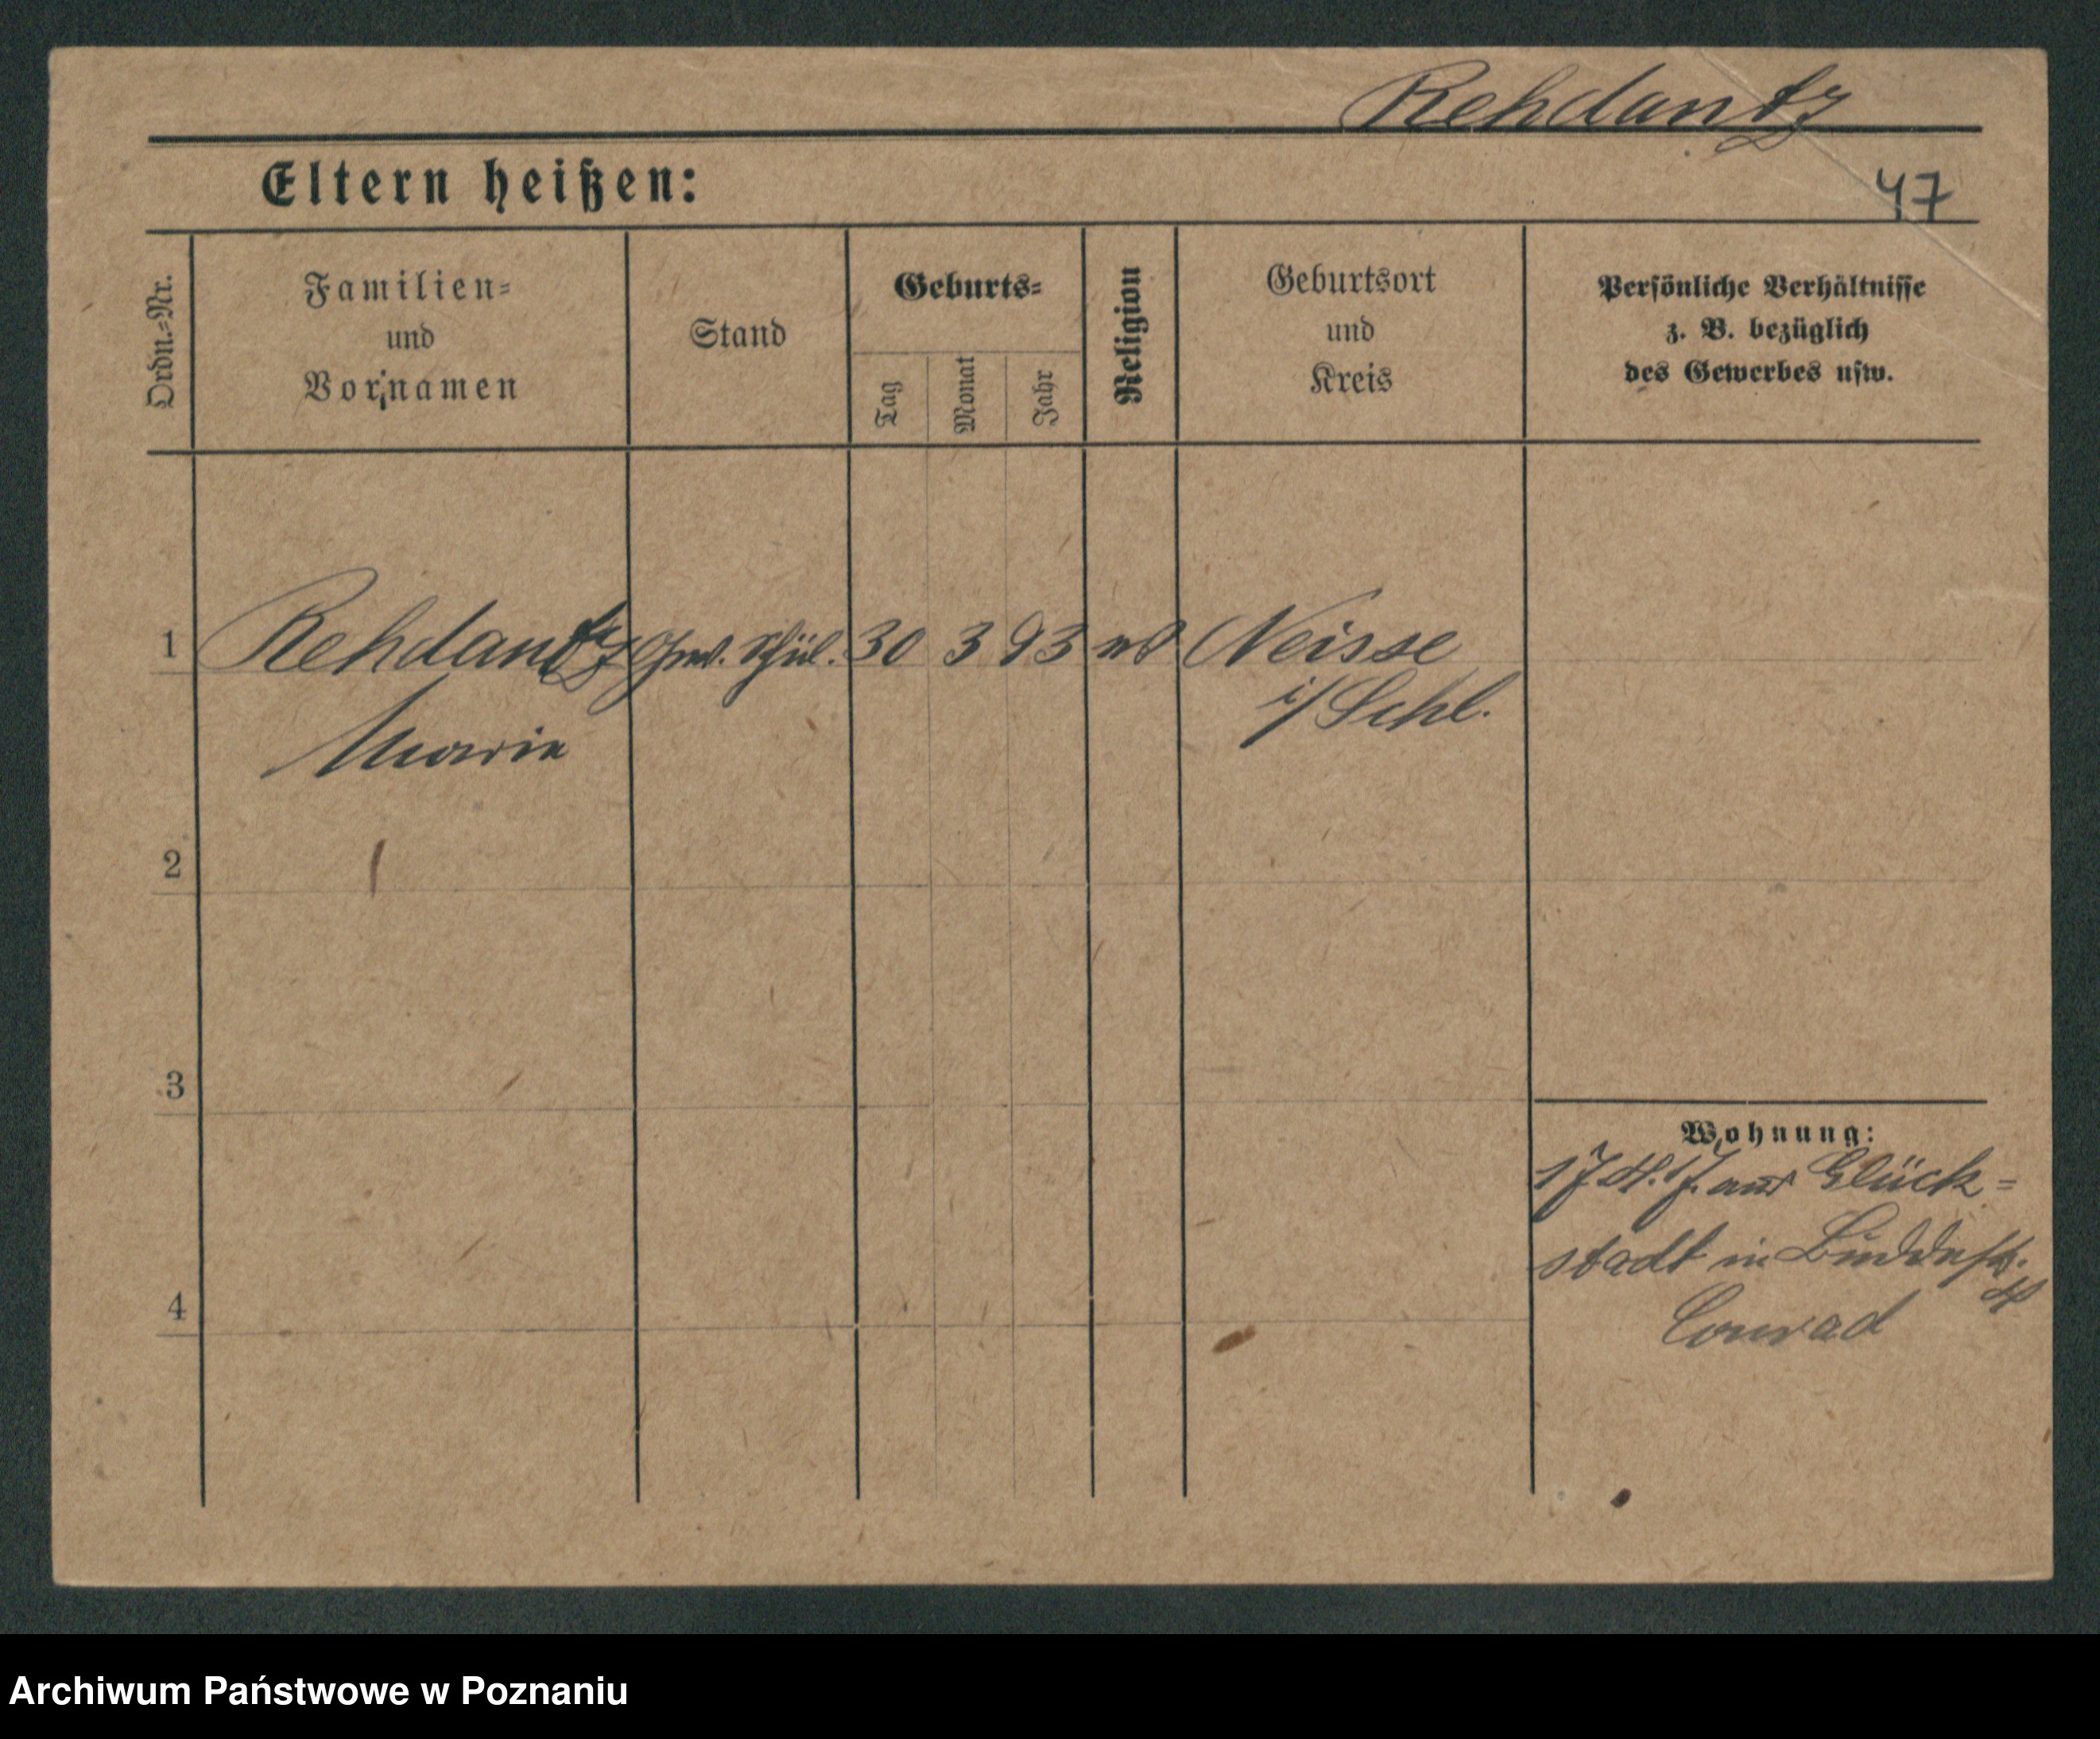 Rehdantz
Eltern heißen:
47
Ordn.=Nr.
Familien=
und
Vornamen
Stand
Geburts=
Tag
Monat
Jahr
Religion
Geburtsort
und
Kreis
Persönliche Verhältnisse
z. B. bezüglich
des Gewerbes usw.
1 Rehdantz 30 3 93 Neisse
Marie i/Schl.
2
3
4
Wohnung:
17. 17. aus Glück=
stadt in
Conrad
Archiwum Państwowe w Poznaniu